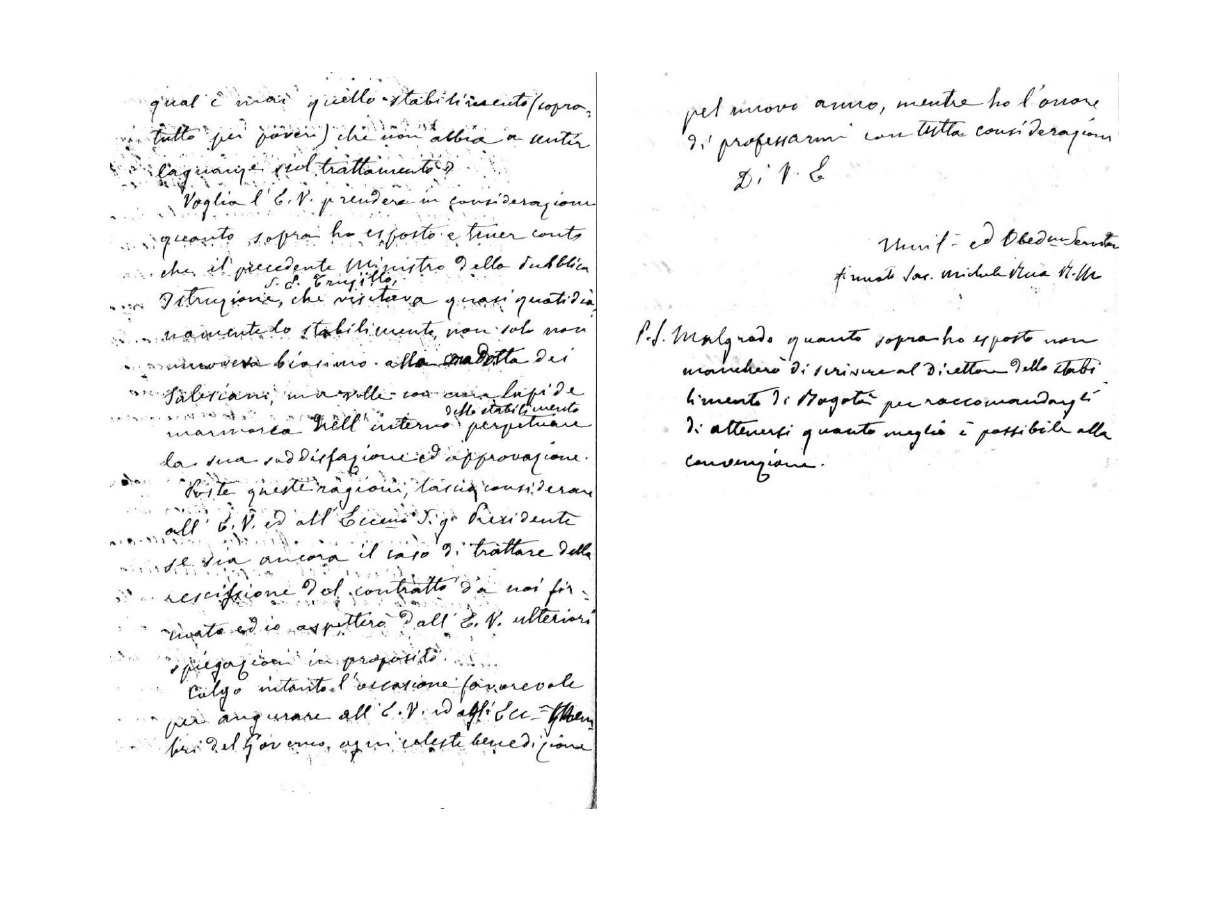 qual è mai quello stabilimento (sopra-
tutto pei poveri) che non abbia a sentir
lagnanze sul trattamento?
Voglia l'E.V. prendere in considerazione
quanto sopra ho esposto e tener conto
che il precedente Ministro della Pubblica
S. E. Trujillo,
Istruzione, che visitava quasi quotidia
namente lo stabilimento, non solo non
moveva biasimo alla condotta dei
Salesiani, ma volle con una lapide
dello stabilimento
marmorea nell'interno perpetuare
la sua soddisfazione ed approvazione.
Poste queste ragioni, lascio considerare
all'E.V. ed all'Eccmo Sigr Presidente
se sia ancora il caso di trattare della
rescissione del contratto da noi fir-
mato ed io aspetterò dall'E.V. ulteriori
spiegazioni in proposito.
Colgo intanto l'occasione favorevole
per augurare all'E.V. ed agli Ecc.mi Mem
bri del Governo, ogni celeste benedizione
pel nuovo anno, mentre ho l'onore
di professarmi con tutta considerazione
Di V. E
Umil.o ed Obedmo Servitore
firmato Sac. Michele Rua R.M
P.S. Malgrado quanto sopra ho esposto non
mancherò di scrivere al Direttore dello stabi
limento di Bogotà per raccomandargli
di attenersi quanto meglio è possibile alla
convenzione.